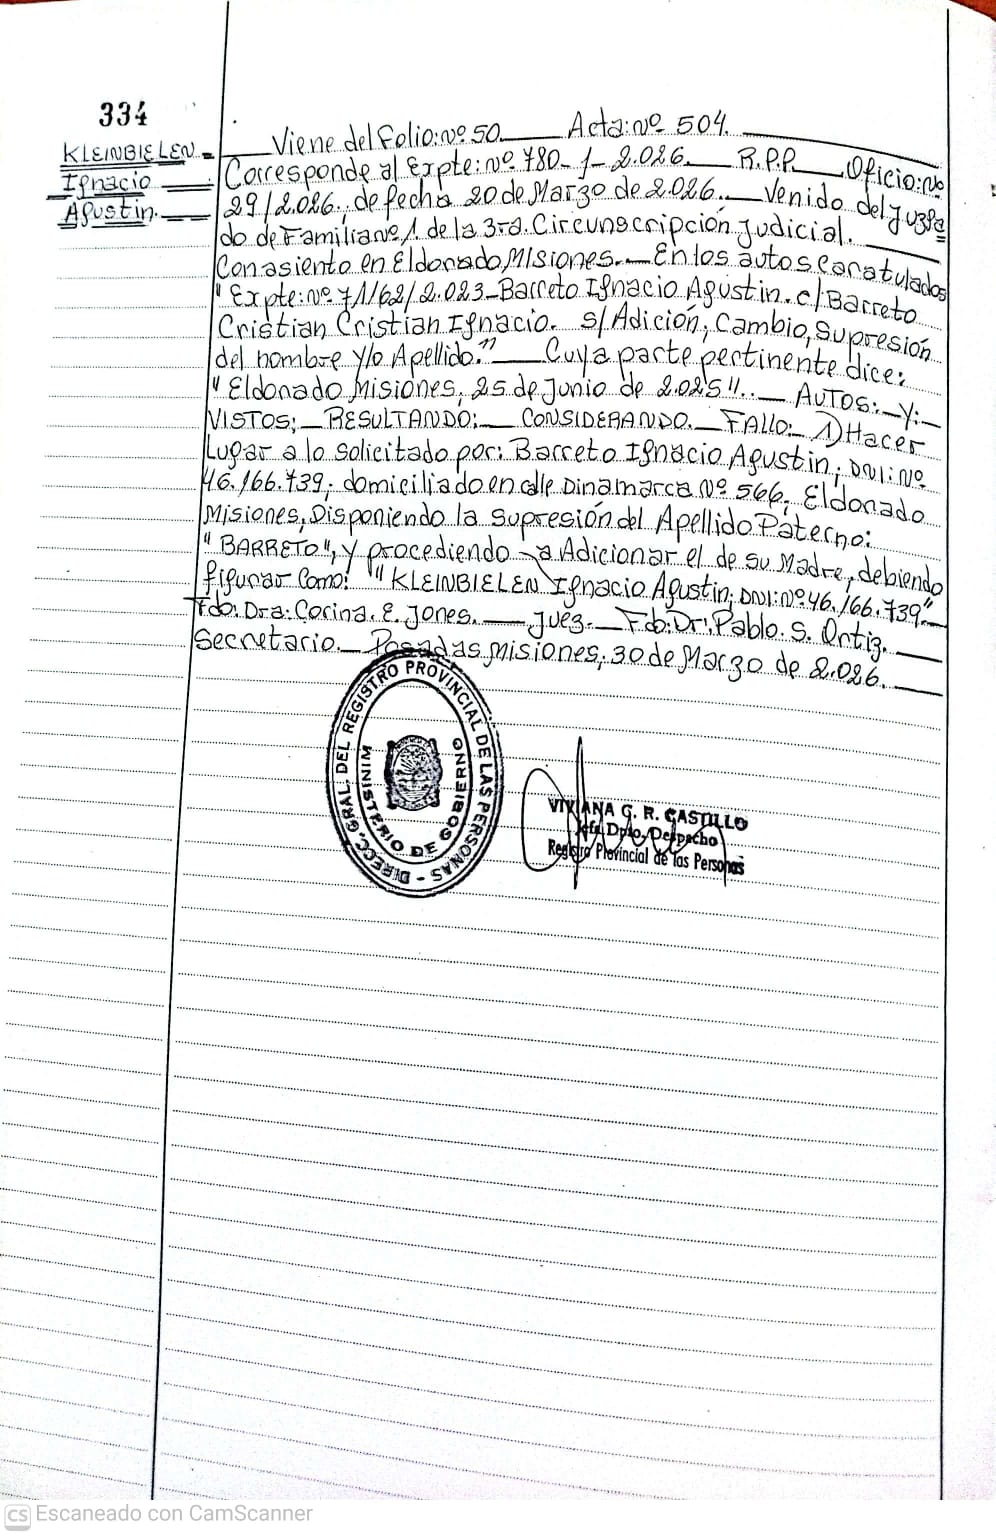 334
KLEINBIELEN
Ignacio
Agustin.
Viene del Folio: nº 50. Acta: nº 504.
Corresponde al Expte: nº 780-1-2.026. R.P.P. Oficio: nº
29/2.026, de fecha 20 de Marzo de 2.026. Venido del Juzga
do de Familia nº 1. de la 3ra. Circunscripción Judicial.
Con asiento en Eldorado, Misiones. En los autos caratulados
"Expte: nº 71162/2.023-Barreto Ignacio Agustin. c/Barreto
Cristian Cristian Ignacio. s/Adición, Cambio, Supresión
del nombre y/o Apellido." Cuya parte pertinente dice:
"Eldorado Misiones, 25 de Junio de 2.025". AUTOS: Y:
VISTOS; RESULTANDO: CONSIDERANDO. FALLO: 1) Hacer
Lugar a lo solicitado por: Barreto Ignacio Agustin, DNI: Nº
46.166.739; domiciliado en calle Dinamarca Nº 566, Eldorado
Misiones, Disponiendo la supresión del Apellido Paterno:
"BARRETO", y procediendo a Adicionar el de su Madre, debiendo
figurar Como: "KLEINBIELEN Ignacio Agustin; DNI: nº 46.166.739"
Fdo: Dra: Corina. E. Jones. Juez. Fdo: Dr: Pablo. S. Ortiz.
Secretario. Posadas, Misiones, 30 de Marzo de 2.026.
DIRECC. GRAL. DEL REGISTRO PROVINCIAL DE LAS PERSONAS -
MINISTERIO DE GOBIERNO
VIVIANA G. R. CASTILLO
Jefa Dpto. Despacho
Registro Provincial de las Personas
CS Escaneado con CamScanner